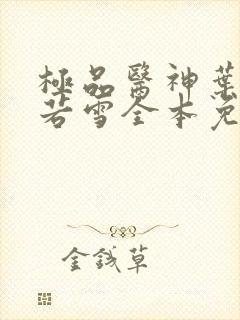 極品醫神葉
若雪全本免
金錢草